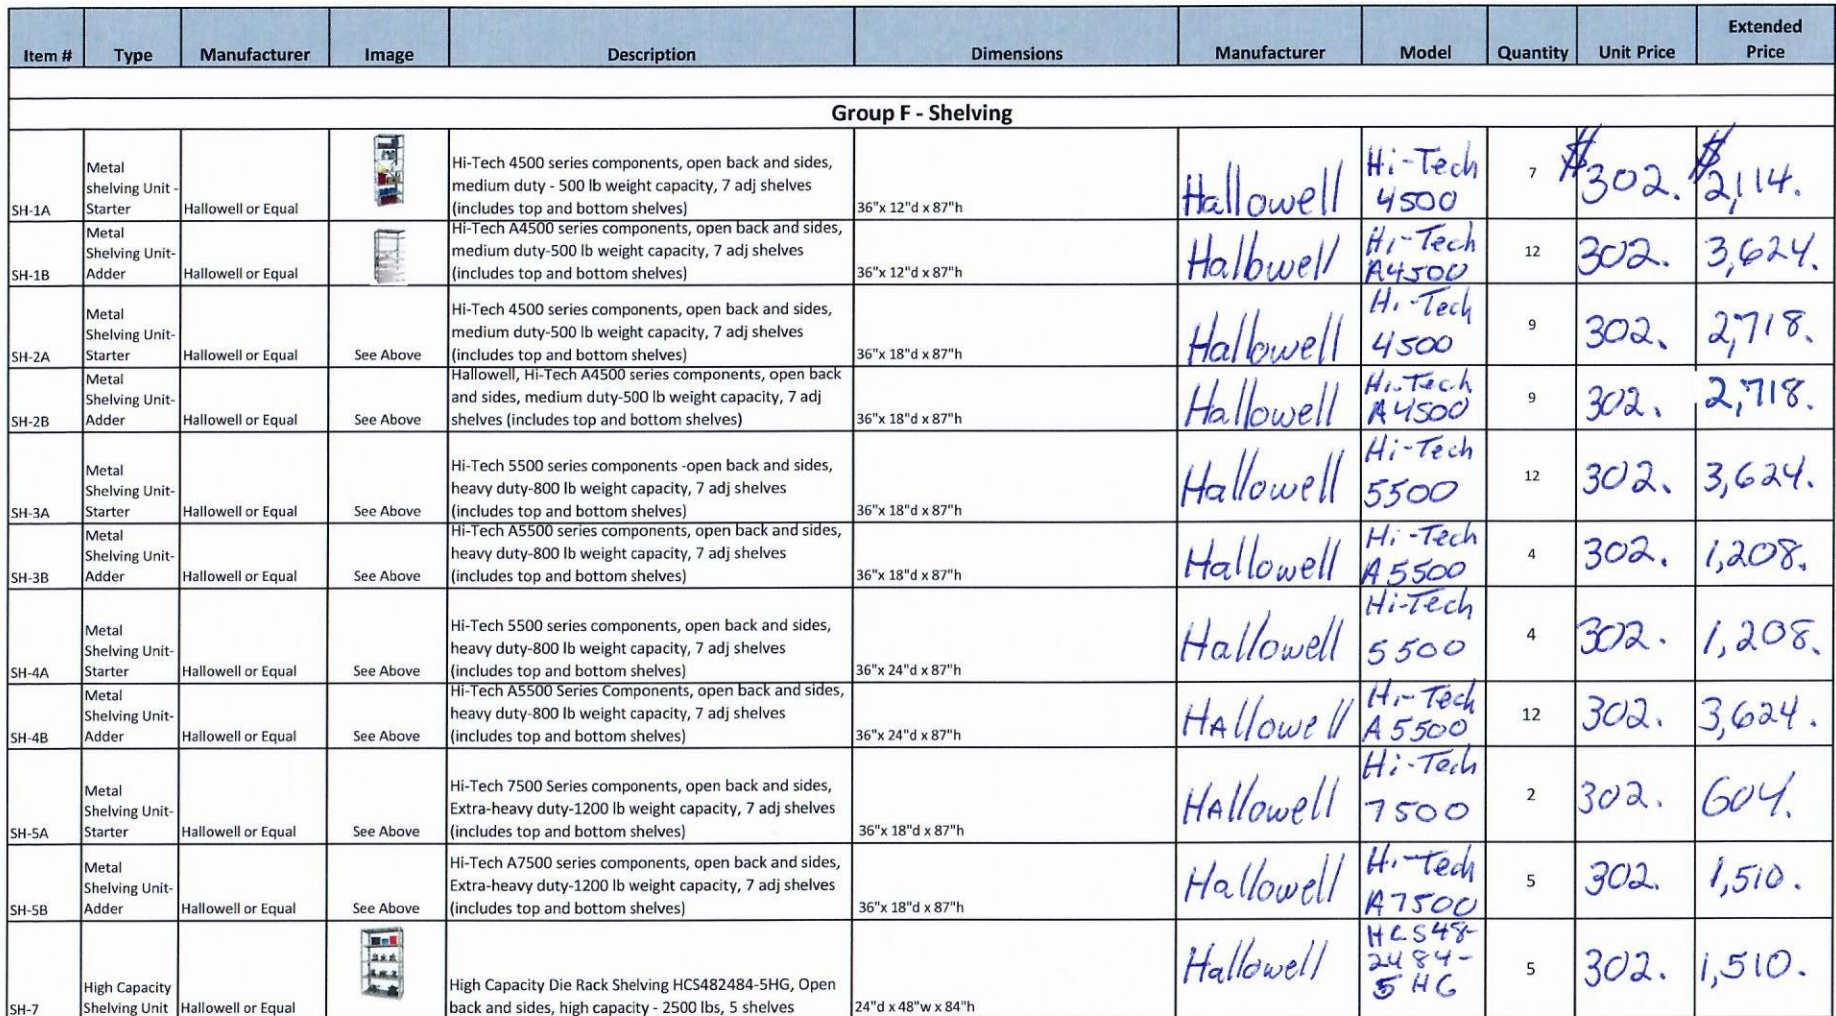 Item # Type Manufacturer Image Description Dimensions Manufacturer Model Quantity Unit Price Extended Price
Group F - Shelving
SH-1A
Metal
shelving Unit -
Starter
Hallowell or Equal
Hi-Tech 4500 series components, open back and sides,
medium duty - 500 lb weight capacity, 7 adj shelves
(includes top and bottom shelves)
36"x 12"d x 87"h
Hallowell
Hi-Tech
4500
7
$302.
$2,114.
SH-1B
Metal
Shelving Unit-
Adder
Hallowell or Equal
Hi-Tech A4500 series components, open back and sides,
medium duty-500 lb weight capacity, 7 adj shelves
(includes top and bottom shelves)
36"x 12"d x 87"h
Hallowell
Hi-Tech
A4500
12
302.
3,624.
SH-2A
Metal
Shelving Unit-
Starter
Hallowell or Equal
See Above
Hi-Tech 4500 series components, open back and sides,
medium duty-500 lb weight capacity, 7 adj shelves
(includes top and bottom shelves)
36"x 18"d x 87"h
Hallowell
Hi-Tech
4500
9
302.
2,718.
SH-2B
Metal
Shelving Unit-
Adder
Hallowell or Equal
See Above
Hallowell, Hi-Tech A4500 series components, open back
and sides, medium duty-500 lb weight capacity, 7 adj
shelves (includes top and bottom shelves)
36"x 18"d x 87"h
Hallowell
Hi-Tech
A4500
9
302.
2,718.
SH-3A
Metal
Shelving Unit-
Starter
Hallowell or Equal
See Above
Hi-Tech 5500 series components -open back and sides,
heavy duty-800 lb weight capacity, 7 adj shelves
(includes top and bottom shelves)
36"x 18"d x 87"h
Hallowell
Hi-Tech
5500
12
302.
3,624.
SH-3B
Metal
Shelving Unit-
Adder
Hallowell or Equal
See Above
Hi-Tech A5500 series components, open back and sides,
heavy duty-800 lb weight capacity, 7 adj shelves
(includes top and bottom shelves)
36"x 18"d x 87"h
Hallowell
Hi-Tech
A5500
4
302.
1,208.
SH-4A
Metal
Shelving Unit-
Starter
Hallowell or Equal
See Above
Hi-Tech 5500 series components, open back and sides,
heavy duty-800 lb weight capacity, 7 adj shelves
(includes top and bottom shelves)
36"x 24"d x 87"h
Hallowell
Hi-Tech
5500
4
302.
1,208.
SH-4B
Metal
Shelving Unit-
Adder
Hallowell or Equal
See Above
Hi-Tech A5500 Series Components, open back and sides,
heavy duty-800 lb weight capacity, 7 adj shelves
(includes top and bottom shelves)
36"x 24"d x 87"h
HAllowell
Hi-Tech
A5500
12
302.
3,624.
SH-5A
Metal
Shelving Unit-
Starter
Hallowell or Equal
See Above
Hi-Tech 7500 Series components, open back and sides,
Extra-heavy duty-1200 lb weight capacity, 7 adj shelves
(includes top and bottom shelves)
36"x 18"d x 87"h
HAllowell
Hi-Tech
7500
2
302.
604.
SH-5B
Metal
Shelving Unit-
Adder
Hallowell or Equal
See Above
Hi-Tech A7500 series components, open back and sides,
Extra-heavy duty-1200 lb weight capacity, 7 adj shelves
(includes top and bottom shelves)
36"x 18"d x 87"h
Hallowell
Hi-Tech
A7500
5
302.
1,510.
SH-7
High Capacity
Shelving Unit
Hallowell or Equal
High Capacity Die Rack Shelving HCS482484-5HG, Open
back and sides, high capacity - 2500 lbs, 5 shelves
24"d x 48"w x 84"h
Hallowell
HCS48-
2484-
5HG
5
302.
1,510.